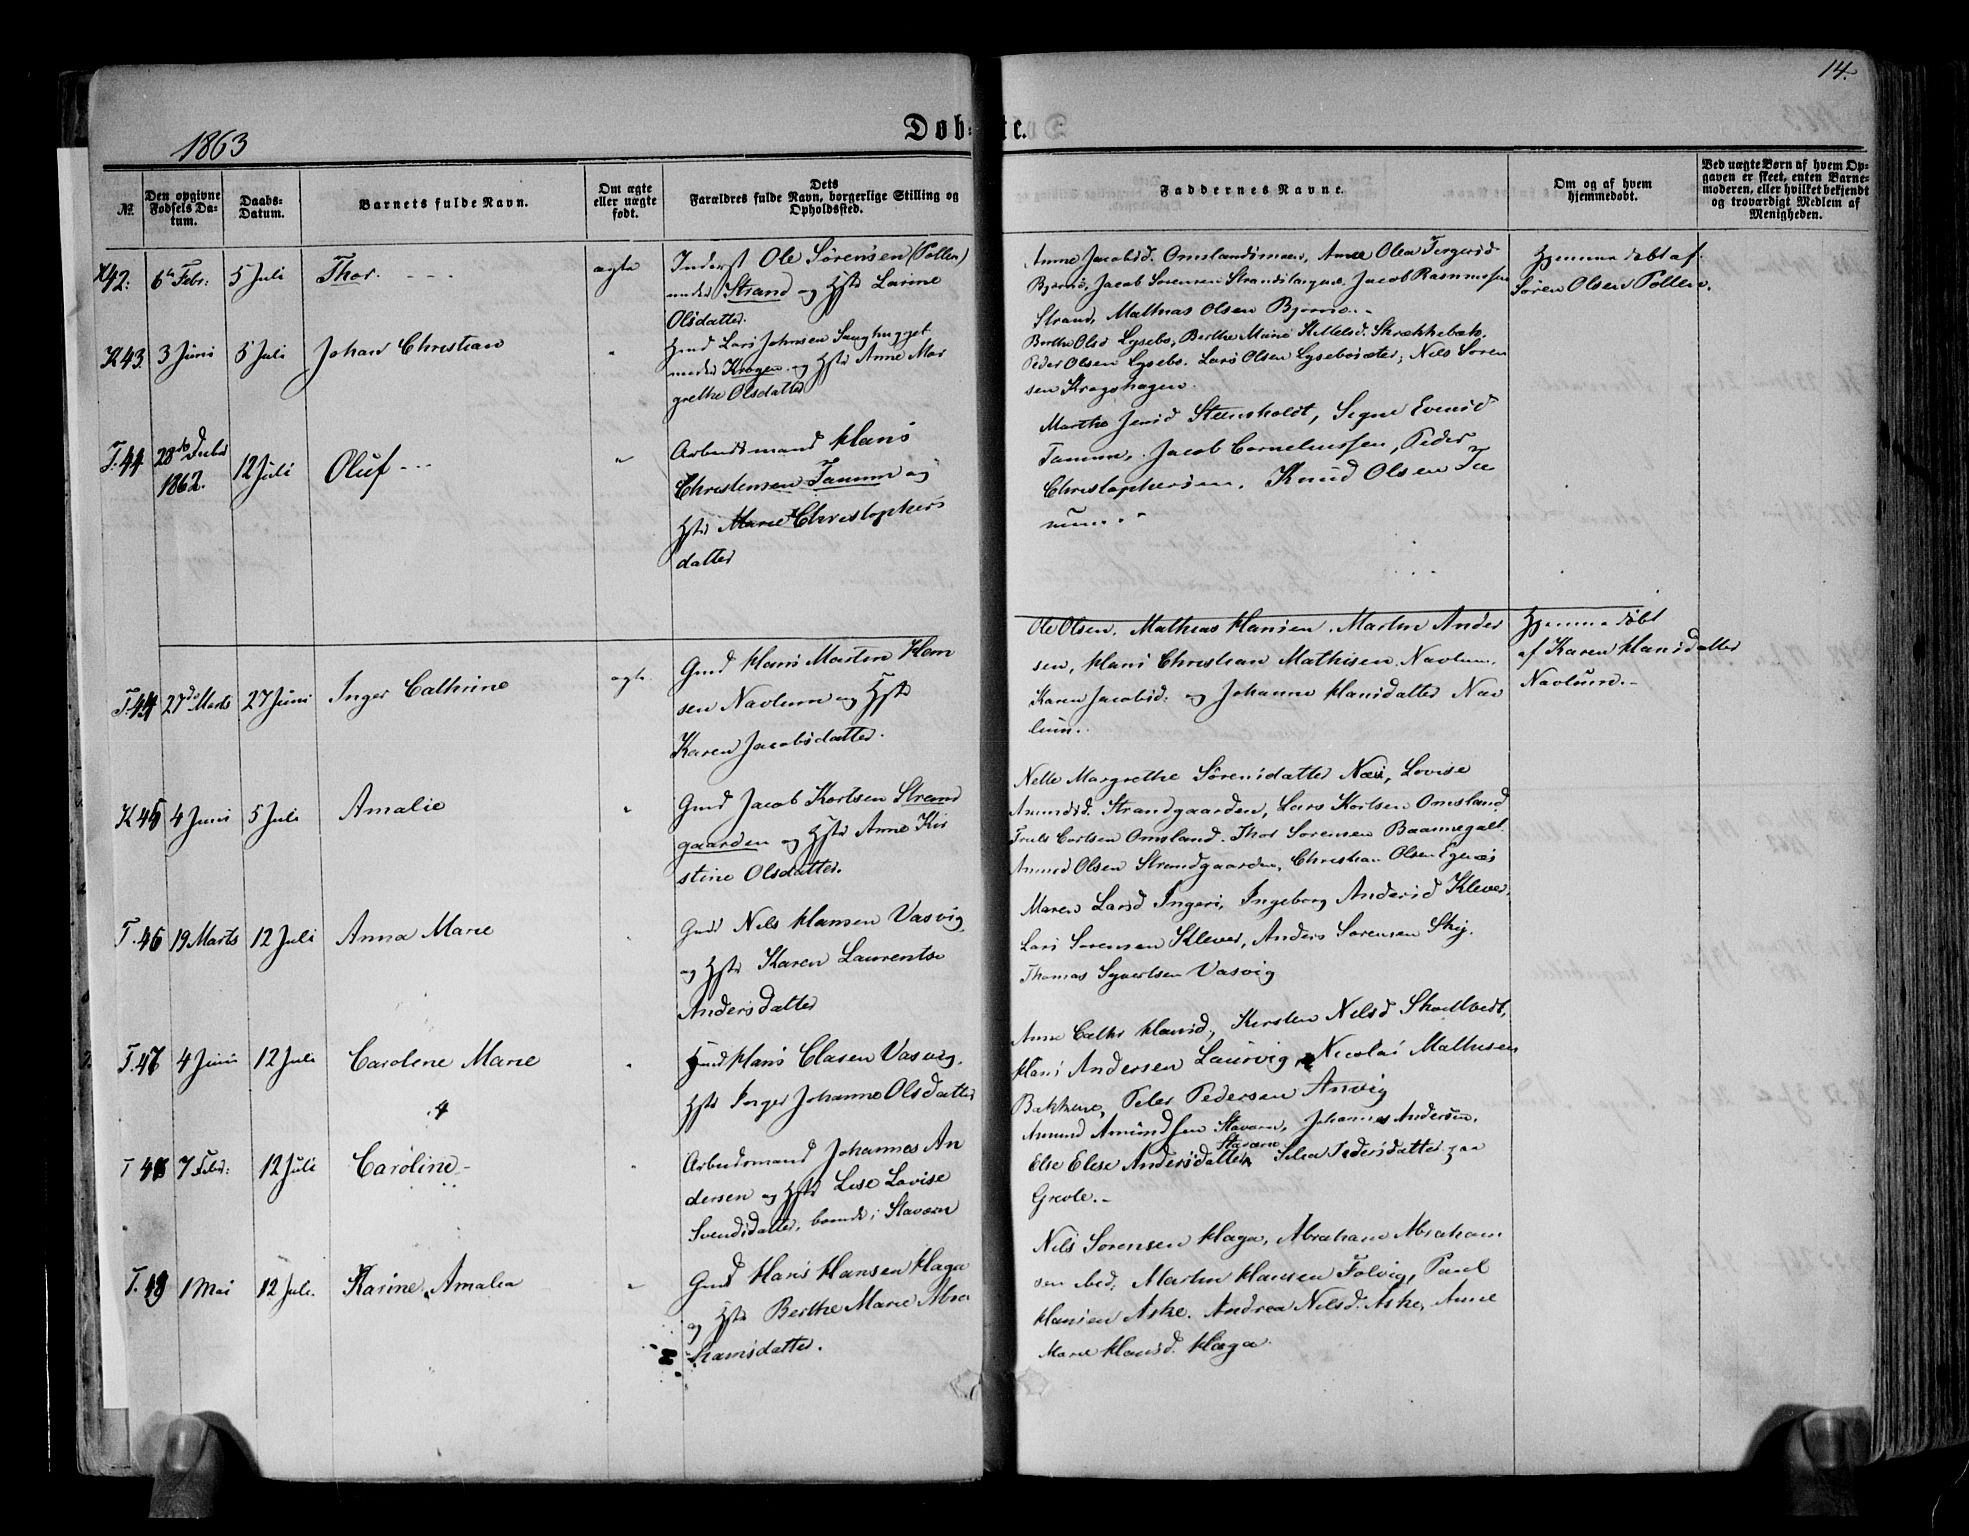 14.
1863
Døbte.
№.
Den opgivne Fødsels Datum.
Daabs-Datum.
Barnets fulde Navn.
Om ægte eller uægte født.
Dets Forældres fulde Navn, borgerlige Stilling og Opholdssted.
Faddernes Navne.
Om og af hvem hjemmedøbt.
Ved uægte Børn af hvem Opgaven er skeet, enten Barnemoderen, eller hvilket bekjendt og troværdigt Medlem af Menigheden.
K42. 6te Febr: 5 Juli Thor. ægte
Inderst Ole Sörensen (Pollen)
under Strand og Hstr Larine
Olsdatter.
Anne Jacobsd. Omslandsmoen, Anne Olea Tergersd
Bjernö, Jacob Sörensen Jacob Rasmussen
Strand, Mathias Olsen Bjernö.
Hjemmedöbt af
Sören Olsen Pollen.
K43. 3 Juni 5 Juli Johan Christian "
Gmd Lars Johnsen Saughugget
under Krogen og Hstr Anne Mar
grethe Olsdatter
Berthe Olsd Lysebo, Berthe Marie Skrækkebæk,
Peder Olsen Lysebo. Lars Olsen Lysebosæter; Nils Sören
sen Krogshagen.
T.44 28de
1862. 12 Juli Oluf "
Arbeidsmand Hans
Christensen Tanum og
Hstr Marie Christophers
datter
Marthe Jensd Steensholdt, Signe Evensd
Tanum, Jacob Corneliussen, Peder
Christophersen, Knud Olsen Ta
num.
T.44 27de Marts 27 Juni Inger Cathrine ægte
Gmd Hans Martin Han
sen Navlum og Hstr
Karen Jacobsdatter.
Ole Olsen. Mathias Hansen. Martin Ander
sen, Hans Christian Mathisen Navlum.
Karen Jacobsd. og Johanne Hansdatter Nav
lum.
Hjemmedöbt
af Karen Hansdatter
Navlum.
K45 4 Juni 5 Juli Amalie "
Gmd Jacob Karlsen Strand
gaarden og Hstr Anne Kir
stine Olsdatter.
Nelle Margrethe Sörensdatter Næs, Lovise
Amundsd. Strandgaarden, Lars Karlsen Omsland
Truls Carlsen Omsland. Thor Sörensen Baannegalt
Amund Olsen Strandgaarden, Christian Olsen Egenæs
T.46 19 Marts 12 Juli Anna Marie "
Gmd Nils Hansen Vasvig
og Hstr Karen Laurentse
Andersdatter
Maren Larsd Ingeri, Ingeborg Andersd Klever,
Lars Sörensen Klever, Anders Sörensen Skij.
Thomas Syvertsen Vasvig
T.47 4 Juni 12 Juli Caroline Marie "
Gmd Hans Clasen Vasvig.
Hstr Inger Johanne Olsdatter
Anne Cathr Hansd., Kirsten Nilsd Skoltvedt,
Hans Andersen Laurvig, Nicolai Mathisen
Bakkene, Peter Pedersen Anvig
T 48 7 Febr: 12 Juli Caroline "
Arbeidsmand Johannes An
dersen og Hstr Lise Lovise
Svendsdatter, boende i Stavern
Amund Amundsen Stavern, Johannes Andersen,
Else Elise Andersdatter Stavern Petersdatter paa
Grevle.
T.49 1 Mai 12 Juli. Karine Amalia "
Gmd Hans Hansen Haga
og Hstr Berthe Marie Abra
hamsdatter.
Nils Sörensen Haga, Abraham Abraham
sen ibid, Martin Hansen Folvig, Paul
Hansen Aske. Andrea Nilsd. Aske, Anne
Marie Hansd. Haga.